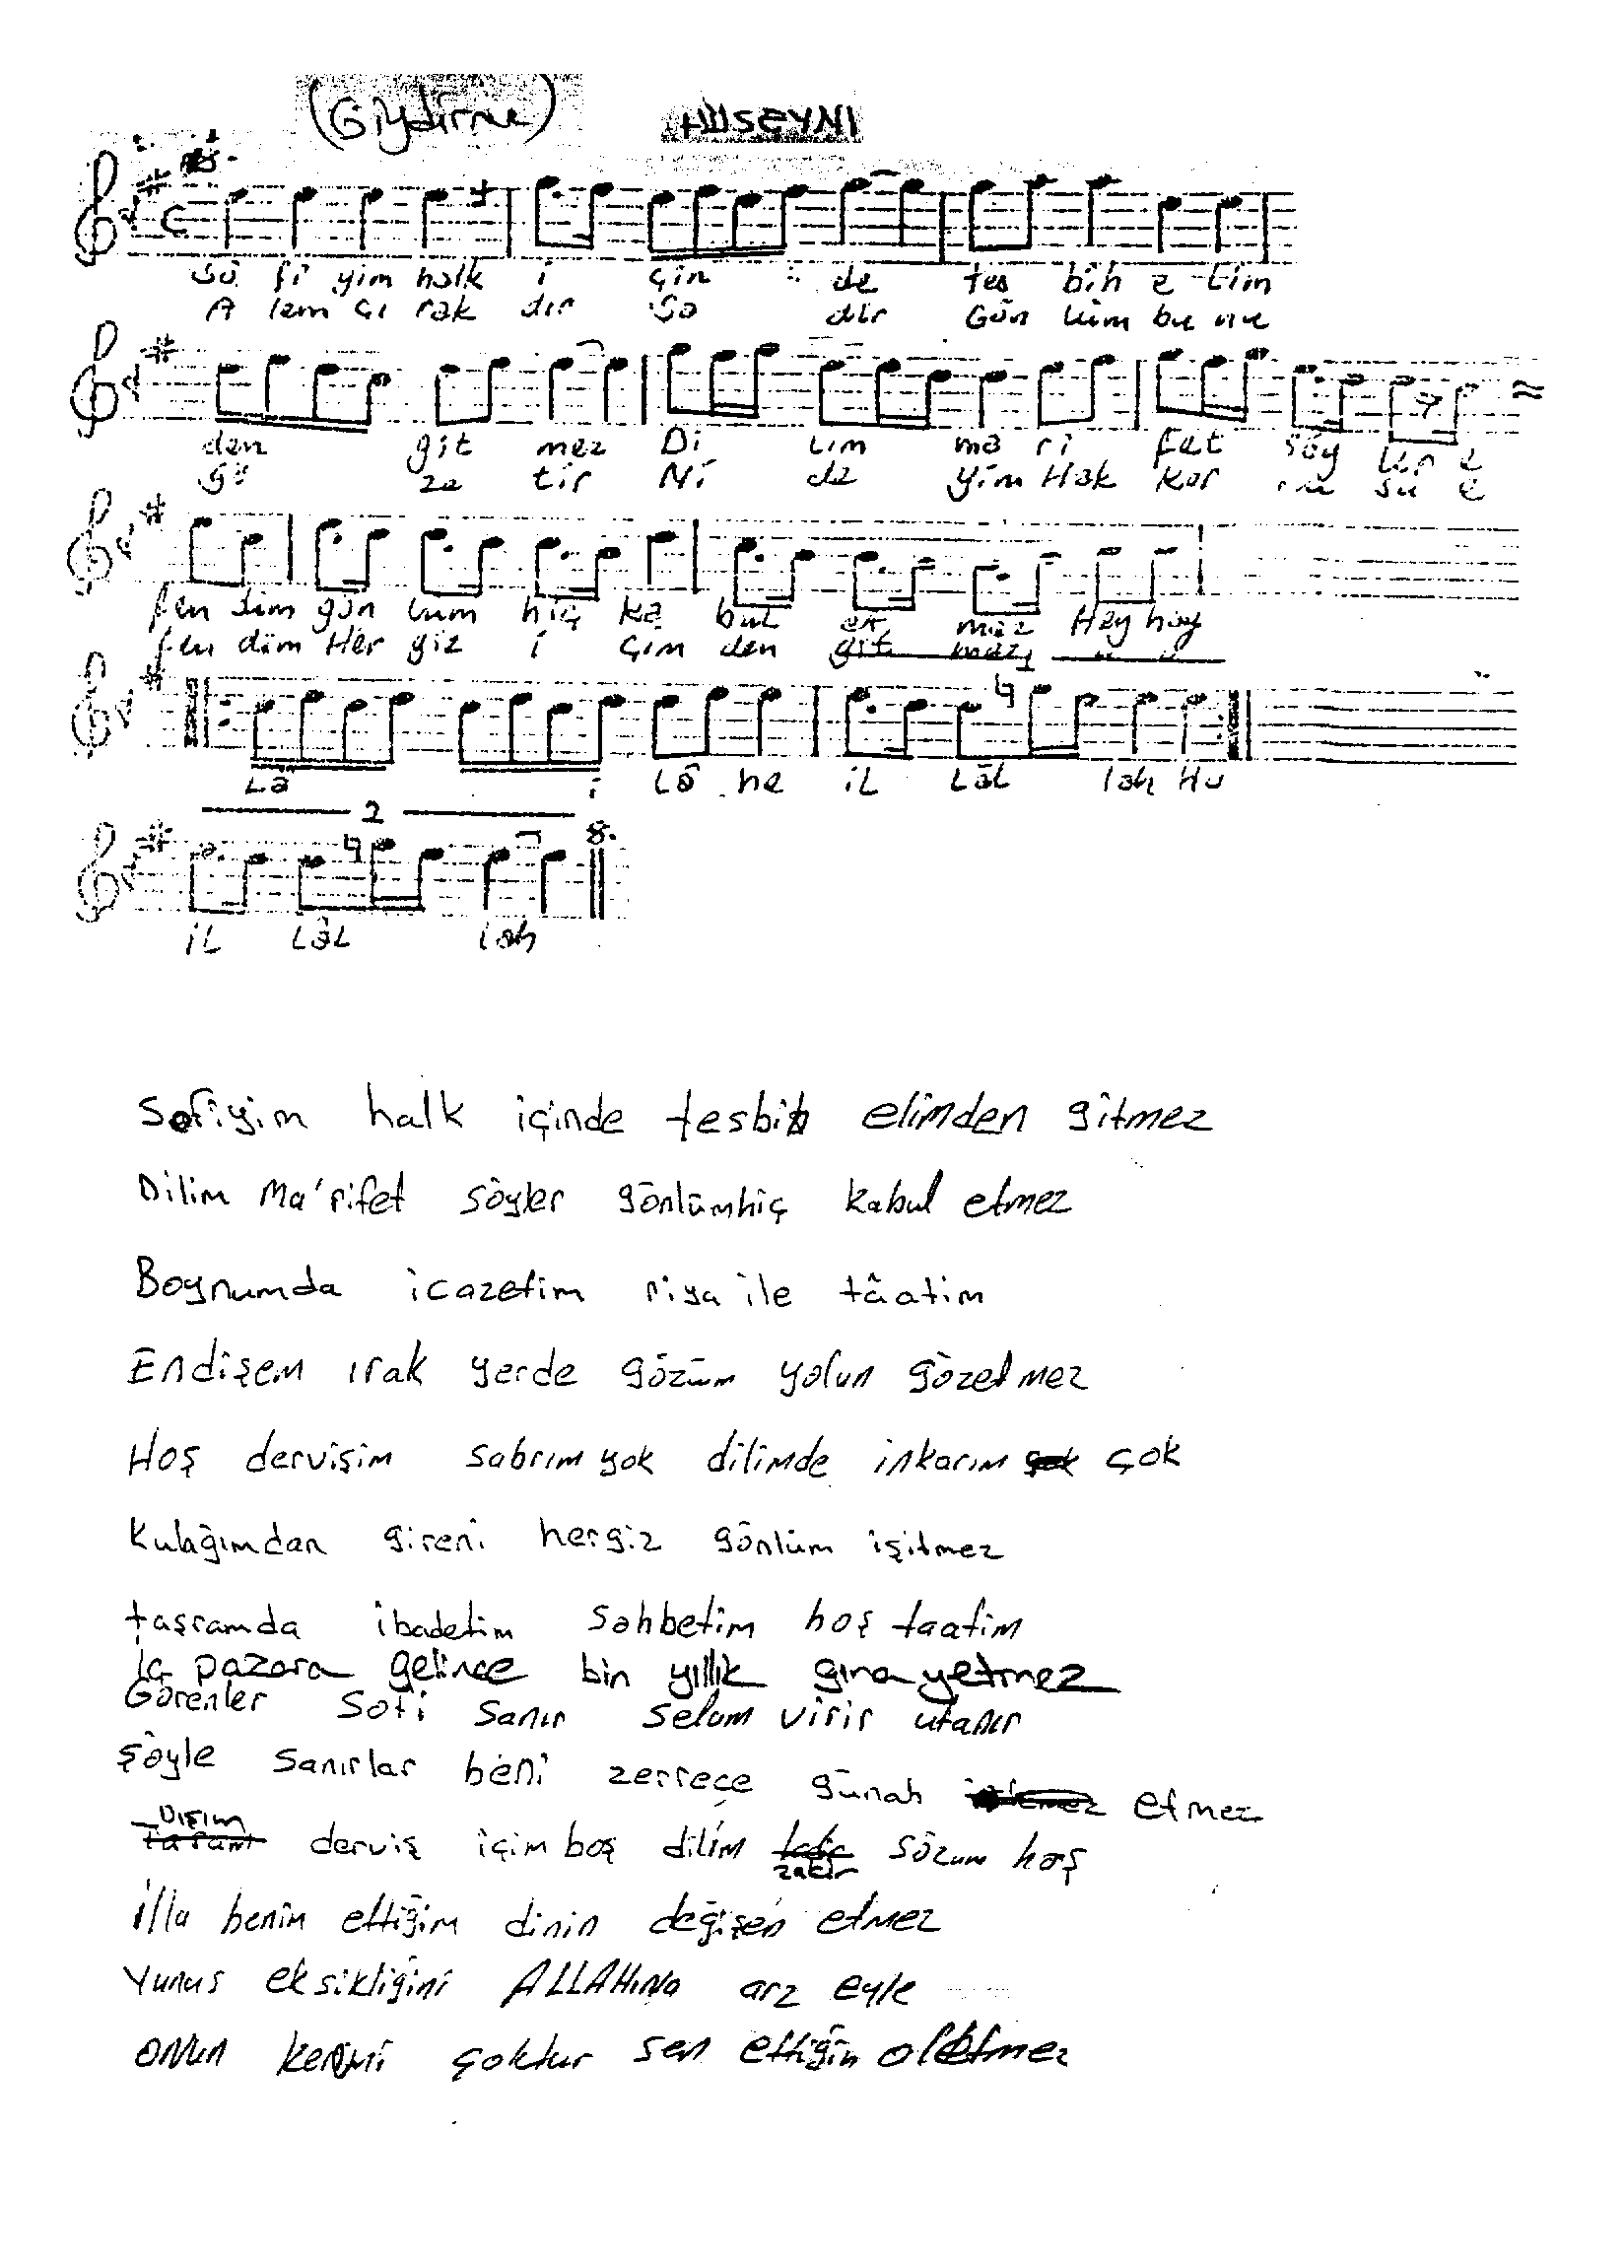 (Giydirme) HÜSEYNİ
Sô fi yim halk i çin de tes bih e lim
A lem çı rak dır Sa dır Gön lüm bu nu
den git mez Di lim ma ri fet söy ler e
gö ze tir Ni de yim Hak kor su e
fen dim gön lüm hiç ka bul et mez Hey hey
fen dim Her giz i çim den git mez
1
Lâ i Lâ he iL Lâl lah Hu
2
iL Lâl lah
Sofiyim halk içinde tesbih elimden gitmez
Dilim Ma'rifet söyler gönlümhiç kabul etmez
Boynumda icazetim riya ile tâatim
Endişem ırak yerde gözüm yolun gözetmez
Hoş dervişim sabrım yok dilimde inkarım çok
Kulağımdan gireni hergiz gönlüm işitmez
taşramda ibadetim sohbetim hoş taatim
İç pazara gelince bin yıllık gına yetmez
Görenler sofi sanır selam virir utanır
şöyle sanırlar beni zerrece günah etmez
Dışım derviş içim boş dilim zakir sözüm hoş
illa benim ettiğim dinin değişen etmez
Yunus eksikliğini ALLAHına arz eyle
onun keremi çoktur sen ettiğin ol etmez